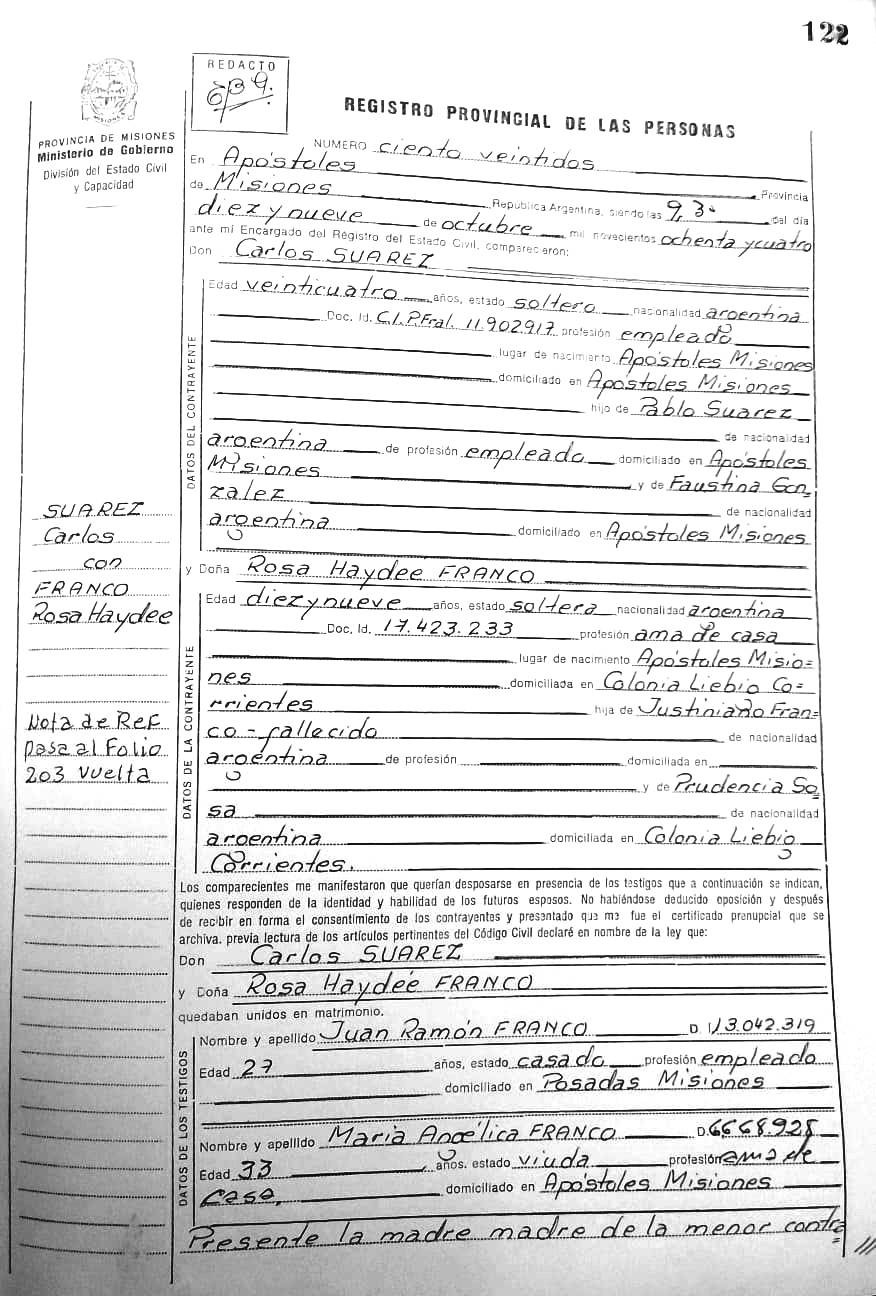 122
REDACTO
REGISTRO PROVINCIAL DE LAS PERSONAS
PROVINCIA DE MISIONES
Ministerio de Gobierno
División del Estado Civil
y Capacidad
NUMERO ciento veintidos
En Apóstoles Provincia
de Misiones República Argentina, siendo las 9,30 del día
diez y nueve de octubre mil novecientos ochenta y cuatro
ante mí Encargado del Registro del Estado Civil, comparecieron:
Don Carlos SUAREZ
DATOS DEL CONTRAYENTE
Edad veinticuatro años, estado soltero nacionalidad argentina
Doc. Id. C.I.P.Fral. 11.902.917 profesión empleado
lugar de nacimiento Apóstoles Misiones
domiciliado en Apóstoles Misiones
hijo de Pablo Suarez
de nacionalidad
argentina de profesión empleado domiciliado en Apóstoles
Misiones y de Faustina Gon
zalez de nacionalidad
argentina domiciliado en Apóstoles Misiones
y Doña Rosa Haydee FRANCO
DATOS DE LA CONTRAYENTE
Edad diez y nueve años, estado soltera nacionalidad argentina
Doc. Id. 17.423.233 profesión ama de casa
lugar de nacimiento Apóstoles Misio=
nes domiciliada en Colonia Liebig Co=
rrientes hija de Justiniano Fran=
co - fallecido de nacionalidad
argentina de profesión domiciliada en
y de Prudencia So
sa de nacionalidad
argentina domiciliada en Colonia Liebig
Corrientes.
SUAREZ
Carlos
con
FRANCO
Rosa Haydee
Nota de Ref
pasa al Folio
203 vuelta
Los comparecientes me manifestaron que querían desposarse en presencia de los testigos que a continuación se indican,
quienes responden de la identidad y habilidad de los futuros esposos. No habiéndose deducido oposición y después
de recibir en forma el consentimiento de los contrayentes y presentado que me fue el certificado prenupcial que se
archiva, previa lectura de los artículos pertinentes del Código Civil declaré en nombre de la ley que:
Don Carlos SUAREZ
y Doña Rosa Haydée FRANCO
quedaban unidos en matrimonio.
DATOS DE LOS TESTIGOS
Nombre y apellido Juan Ramón FRANCO D. I. 13.042.319
Edad 27 años, estado casado profesión empleado
domiciliado en Posadas Misiones
Nombre y apellido María Angélica FRANCO D. 6668.928
Edad 33 años, estado viuda profesión ama de
casa, domiciliado en Apóstoles Misiones
Presente la madre madre de la menor contra
=///